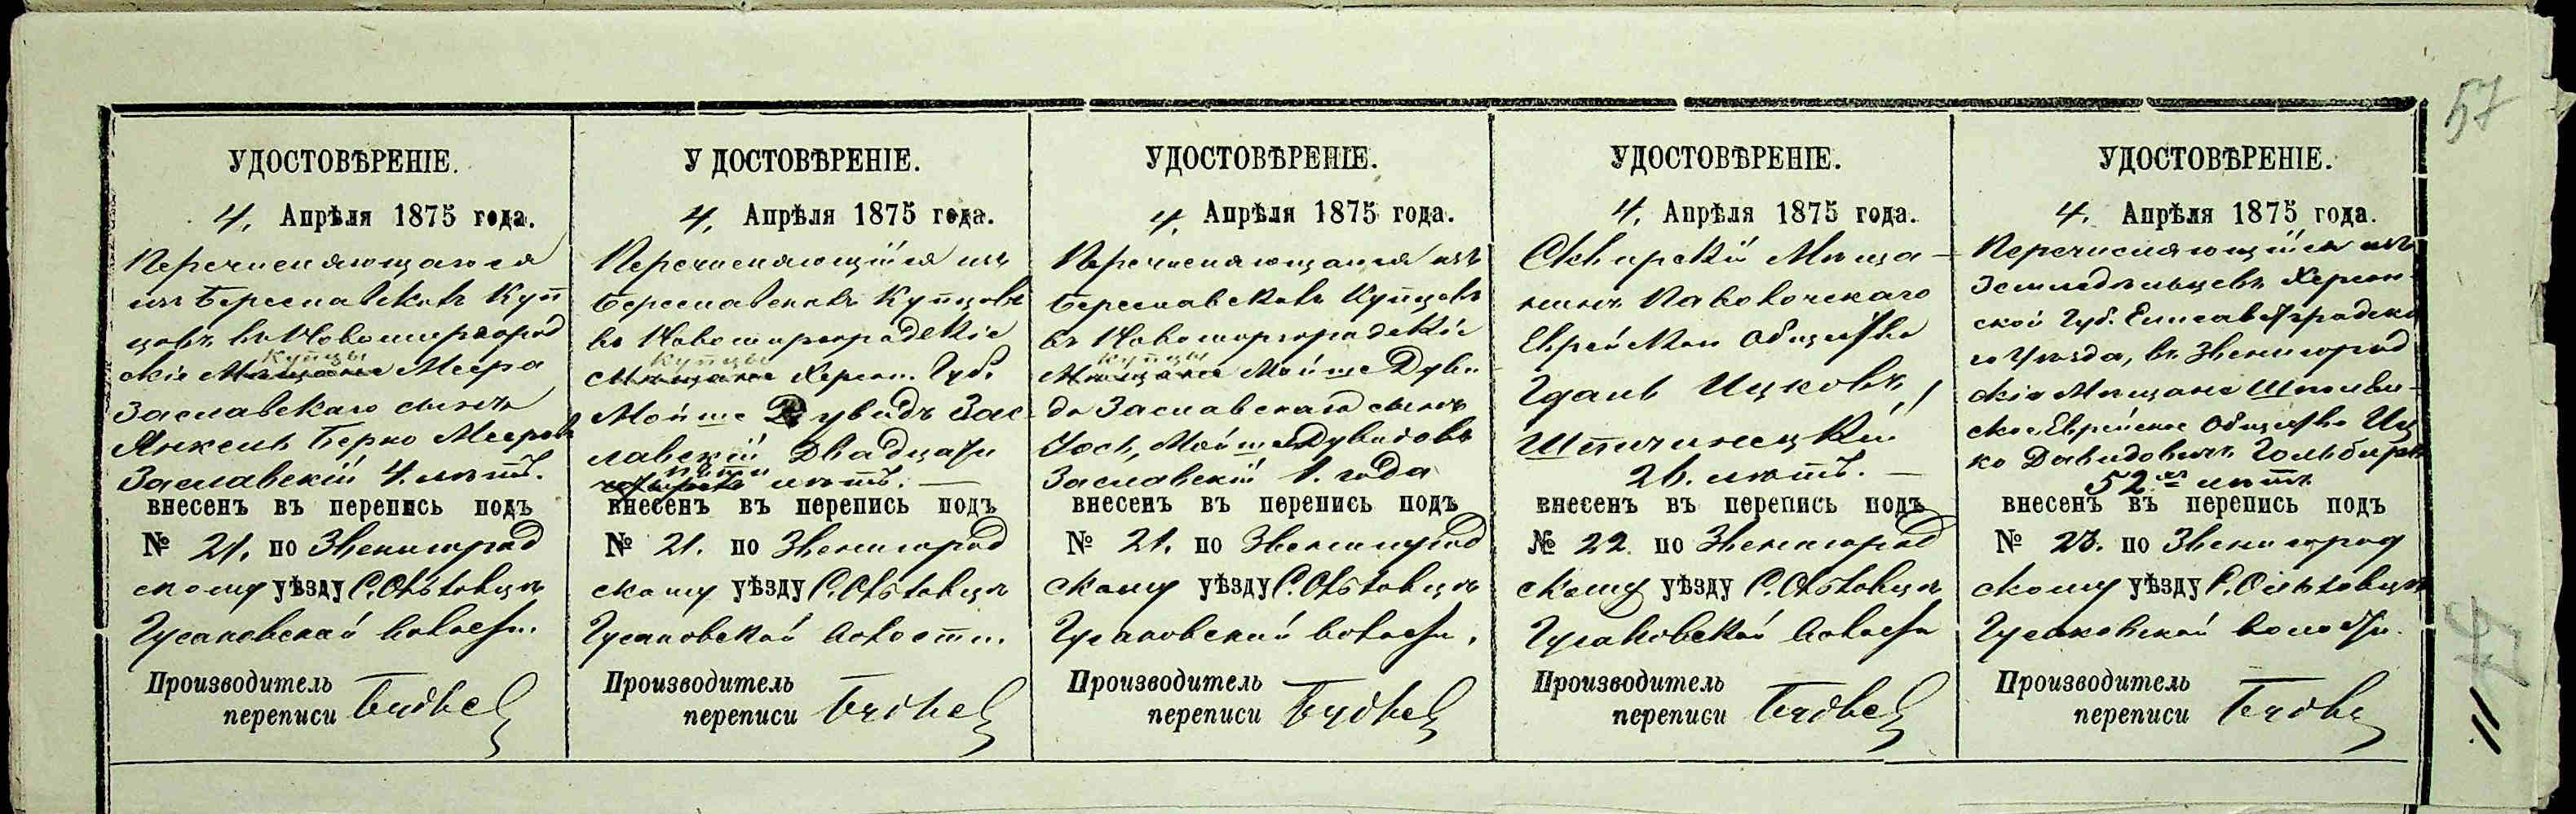 57
УДОСТОВѢРЕНІЕ.
4. Апрѣля 1875 года.
Перечисляющагося
изъ Бериславскихъ Куп
цовъ въ Новомиргород
скіе Мѣщане Купцы Меера
Заславскаго сынъ
Янкель Берко Мееровъ
Заславскій 4. лѣтъ.
внесенъ въ перепись подъ
№ 21. по Звенигород
скому уѣзду С. Ольховцѣ
Гусаковской волости.
Производитель
переписи
УДОСТОВѢРЕНІЕ.
4. Апрѣля 1875 года.
Перечисляющійся изъ
Бериславскихъ Купцовъ
въ Новомиргородскіе
Мѣщане Купцы Херсон. Губ.
Мойше Дувидъ Зас
лавскій Двадцати
четырехъ пяти лѣтъ.
внесенъ въ перепись подъ
№ 21. по Звенигород
скому уѣзду С. Ольховцѣ
Гусаковской волости.
Производитель
переписи
УДОСТОВѢРЕНІЕ.
4. Апрѣля 1875 года.
Перечисляющагося изъ
Бериславскихъ Купцовъ
въ Новомиргородскіе
Мѣщане Купцы Мойше Дуви
да Заславскаго сынъ
Іось, Мойше Дувидовъ
Заславскій 1. года
внесенъ въ перепись подъ
№ 21. по Звенигород
скому уѣзду С. Ольховцѣ
Гусаковской волости.
Производитель
переписи
УДОСТОВѢРЕНІЕ.
4. Апрѣля 1875 года.
Сквирскій Мѣща
нинъ Паволочскаго
Еврейскаго Общества
Гдаль Ицковъ
Шпичинецкій
26. лѣтъ.
внесенъ въ перепись подъ
№ 22. по Звенигород
скому уѣзду С. Ольховцѣ
Гусаковской волости
Производитель
переписи
УДОСТОВѢРЕНІЕ.
4. Апрѣля 1875 года.
Перечисляющійся изъ
Земледѣльцевъ Херсон
ской Губ. Елисаветградска
го Уѣзда, въ Звенигород
скіе Мѣщане Шполян
ское Еврейское Общество Иц
ко Давидовичъ Гольдбергъ
52 хъ лѣтъ
внесенъ въ перепись подъ
№ 23. по Звенигород
скому уѣзду С. Ольховцѣ
Гусаковской волости.
Производитель
переписи